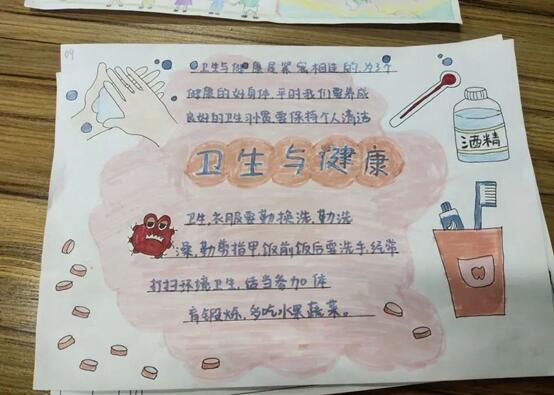 09
卫生与健康是紧密相连的,为了个
健康的好身体,平时我们要养成
良好的卫生习惯要保持个人清洁
酒精
卫生与健康
卫生,衣服要勤换洗,勤洗
澡,勤剪指甲,饭前饭后要洗手,经常
打扫环境卫生,适当参加体
育锻炼,多吃水果蔬菜。